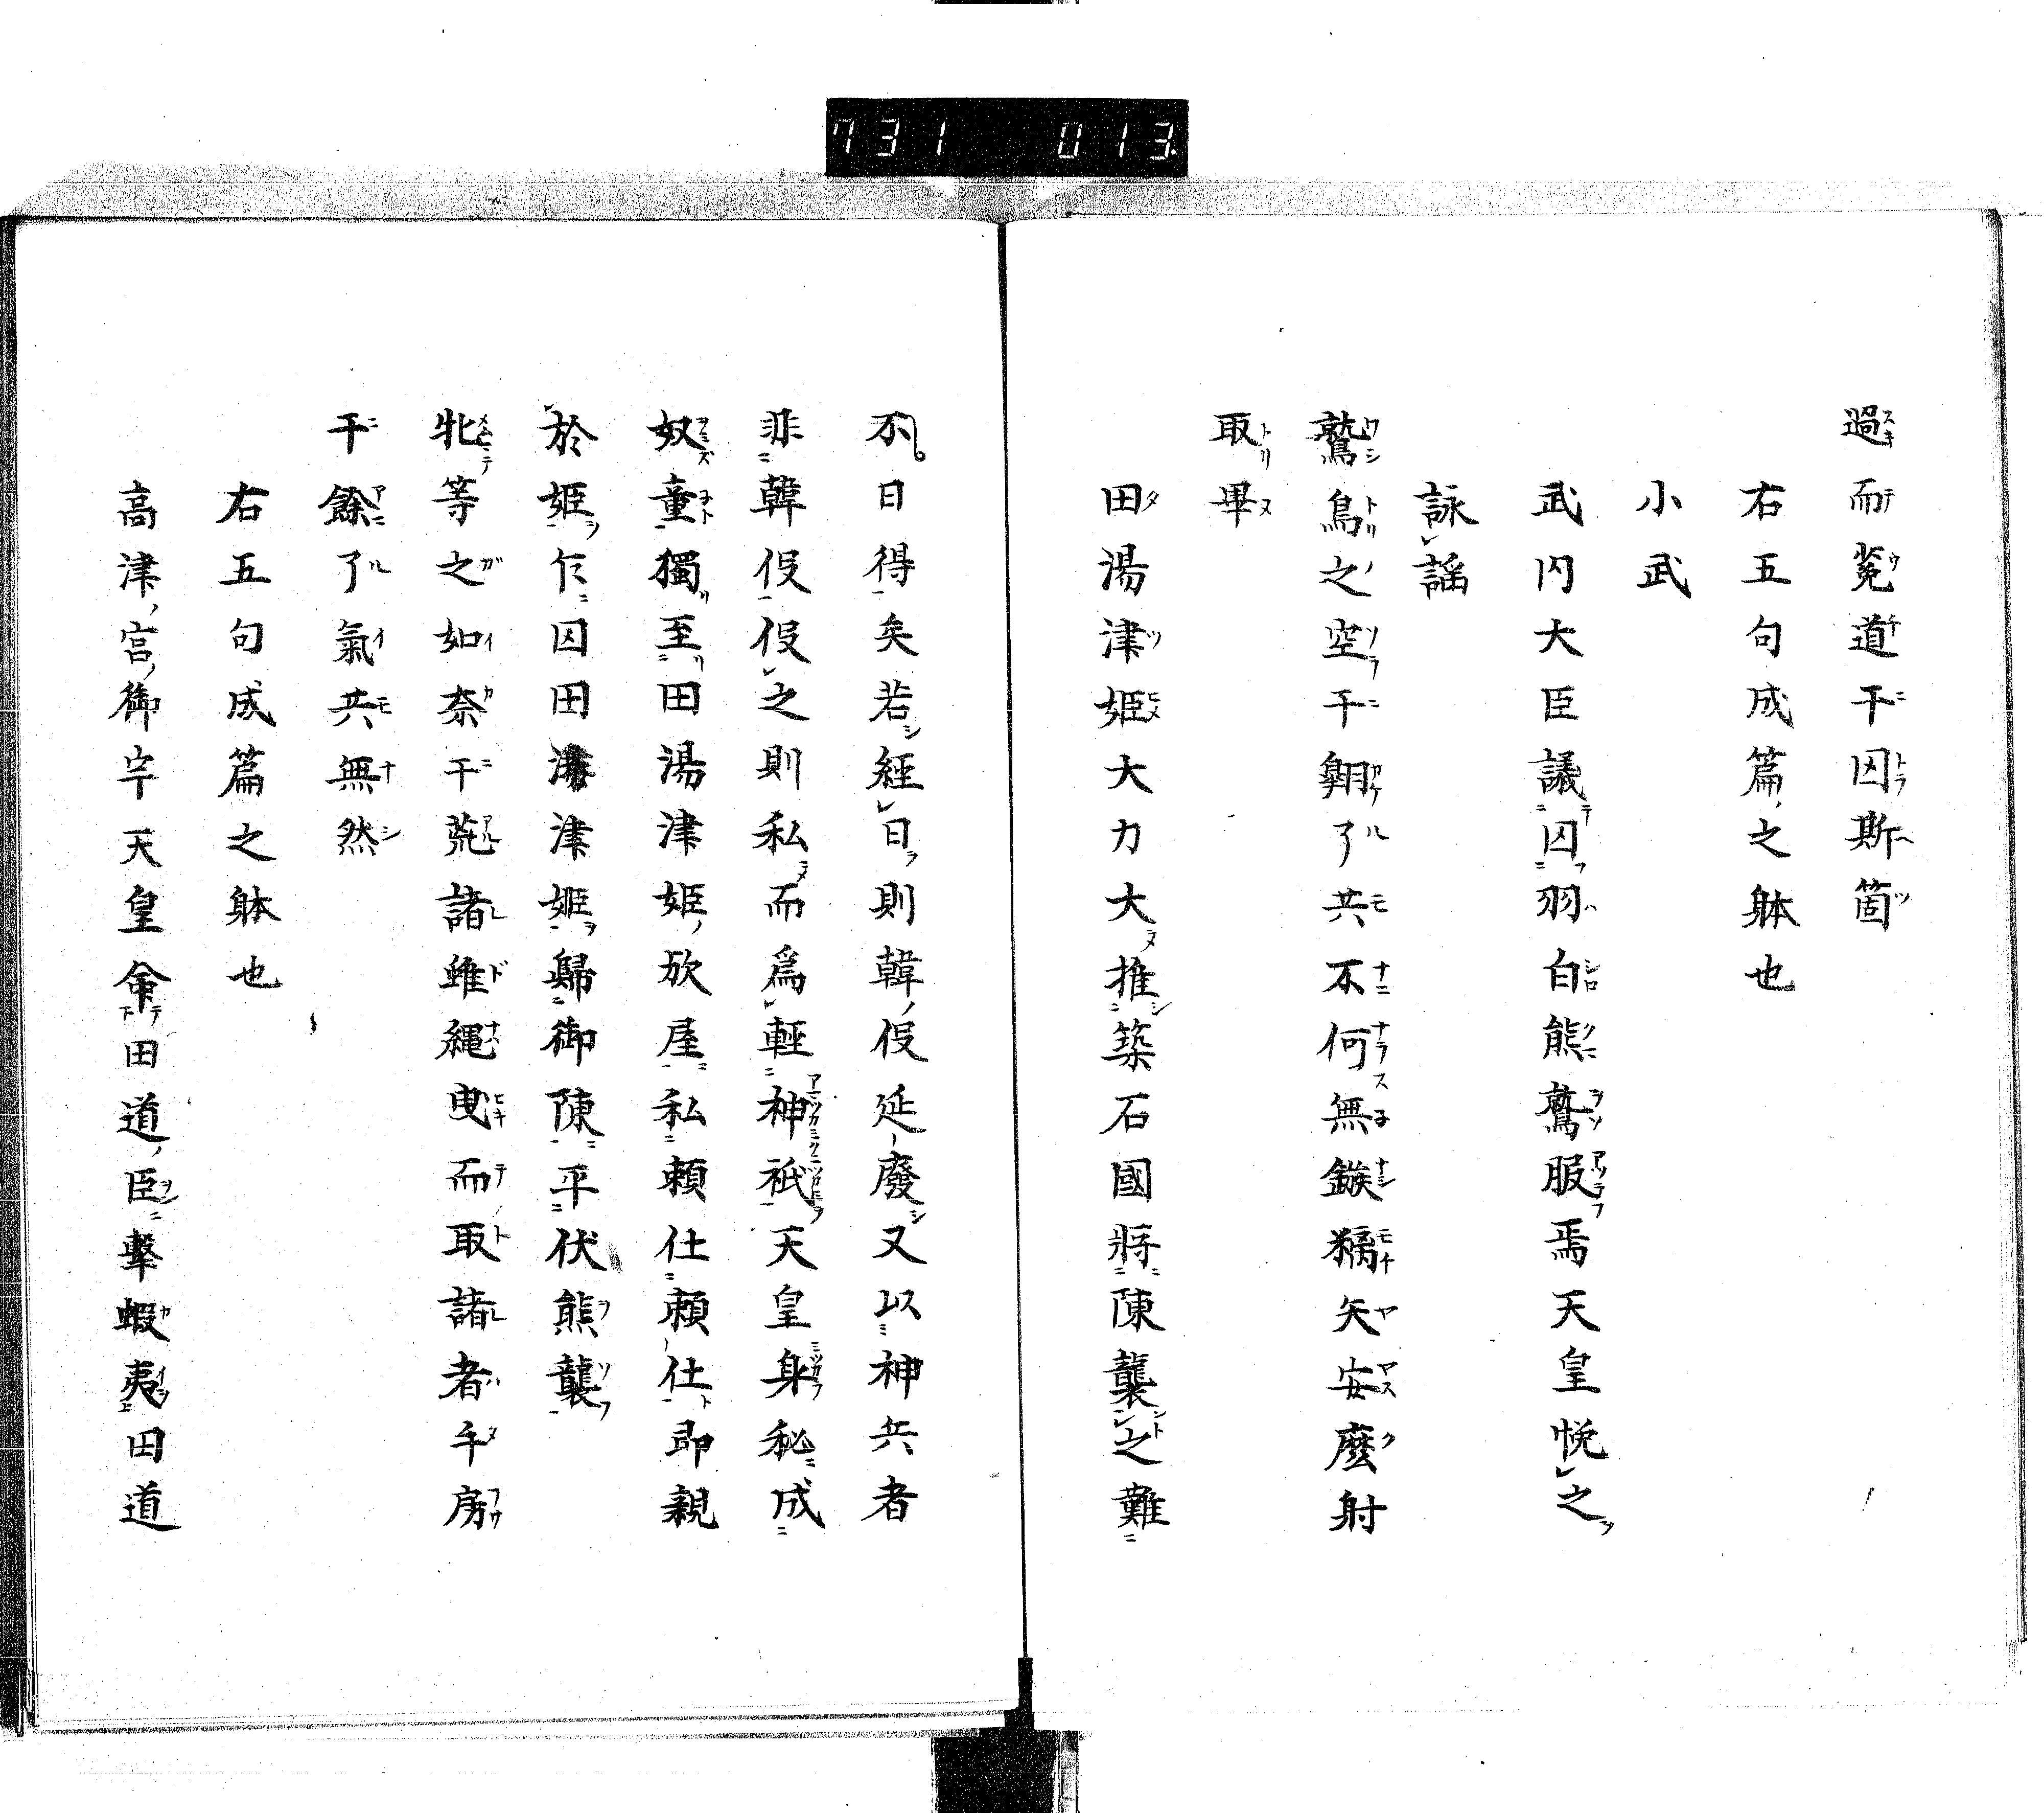 731 013
過而菟道干囚斯箇
右五句成篇之躰也
小武
武内大臣議囚羽白熊鷲服焉天皇悦之
詠謡
鷲鳥之空干翱了共不何無鏃䅻矢安麼射
取畢
田湯津姫大力大推築石國將陳襲之難
不日得矣若經日則韓伇延廢又以神兵者
非韓伇伇之則私而爲輕神祇天皇身秘成
奴童獨至田湯津姫放屋私頼仕頼仕即親
於姫乍囚田湯津姫歸御陳平伏熊襲
牝等之如奈干荒諸雖縄曳而取諸者手房
干餘了氣共無然
右五句成篇之躰也
高津宮御宇天皇命田道臣擊蝦夷田道